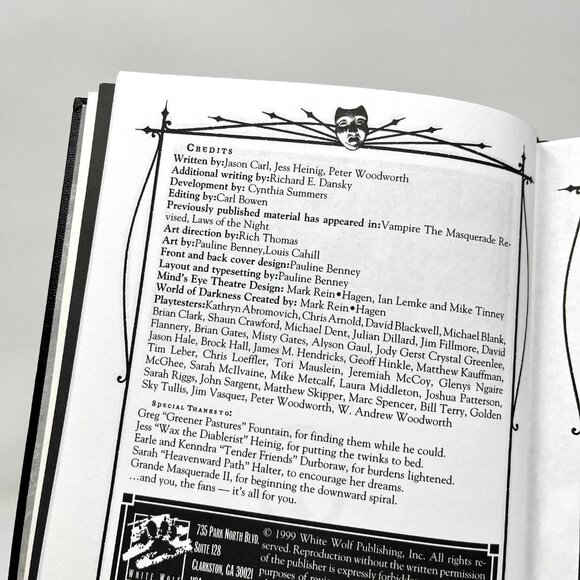 CREDITS
Written by:Jason Carl, Jess Heinig, Peter Woodworth
Additional writing by:Richard E. Dansky
Development by: Cynthia Summers
Editing by:Carl Bowen
Previously published material has appeared in:Vampire The Masquerade Re-
vised, Laws of the Night
Art direction by:Rich Thomas
Art by:Pauline Benney,Louis Cahill
Front and back cover design:Pauline Benney
Layout and typesetting by:Pauline Benney
Mind's Eye Theatre Design: Mark Rein•Hagen, Ian Lemke and Mike Tinney
World of Darkness Created by: Mark Rein•Hagen
Playtesters:Kathryn Abromovich, Chris Arnold, David Blackwell, Michael Blank,
Brian Clark, Shaun Crawford, Michael Dent, Julian Dillard, Jim Fillmore, David
Flannery, Brian Gates, Misty Gates, Alyson Gaul, Jody Gerst Crystal Greenlee,
Jason Hale, Brock Hall, James M. Hendricks, Geoff Hinkle, Matthew Kauffman,
Tim Leber, Chris Loeffler, Tori Mauslein, Jeremiah McCoy, Glenys Ngaire
McGhee, Sarah McIlvaine, Mike Metcalf, Laura Middleton, Joshua Patterson,
Sarah Riggs, John Sargent, Matthew Skipper, Marc Spencer, Bill Terry, Golden
Sky Tullis, Jim Vasquez, Peter Woodworth, W. Andrew Woodworth
SPECIAL THANKS TO:
Greg "Greener Pastures" Fountain, for finding them while he could.
Jess "Wax the Diablerist" Heinig, for putting the twinks to bed.
Earle and Kenndra "Tender Friends" Durboraw, for burdens lightened.
Sarah "Heavenward Path" Halter, to encourage her dreams.
Grande Masquerade II, for beginning the downward spiral.
...and you, the fans — it's all for you.
735 PARK NORTH BLVD.
SUITE 128
CLARKSTON, GA 30021
WHITE WOLF
© 1999 White Wolf Publishing, Inc. All rights re-
served. Reproduction without the written permission
of the publisher is expressly forbidden